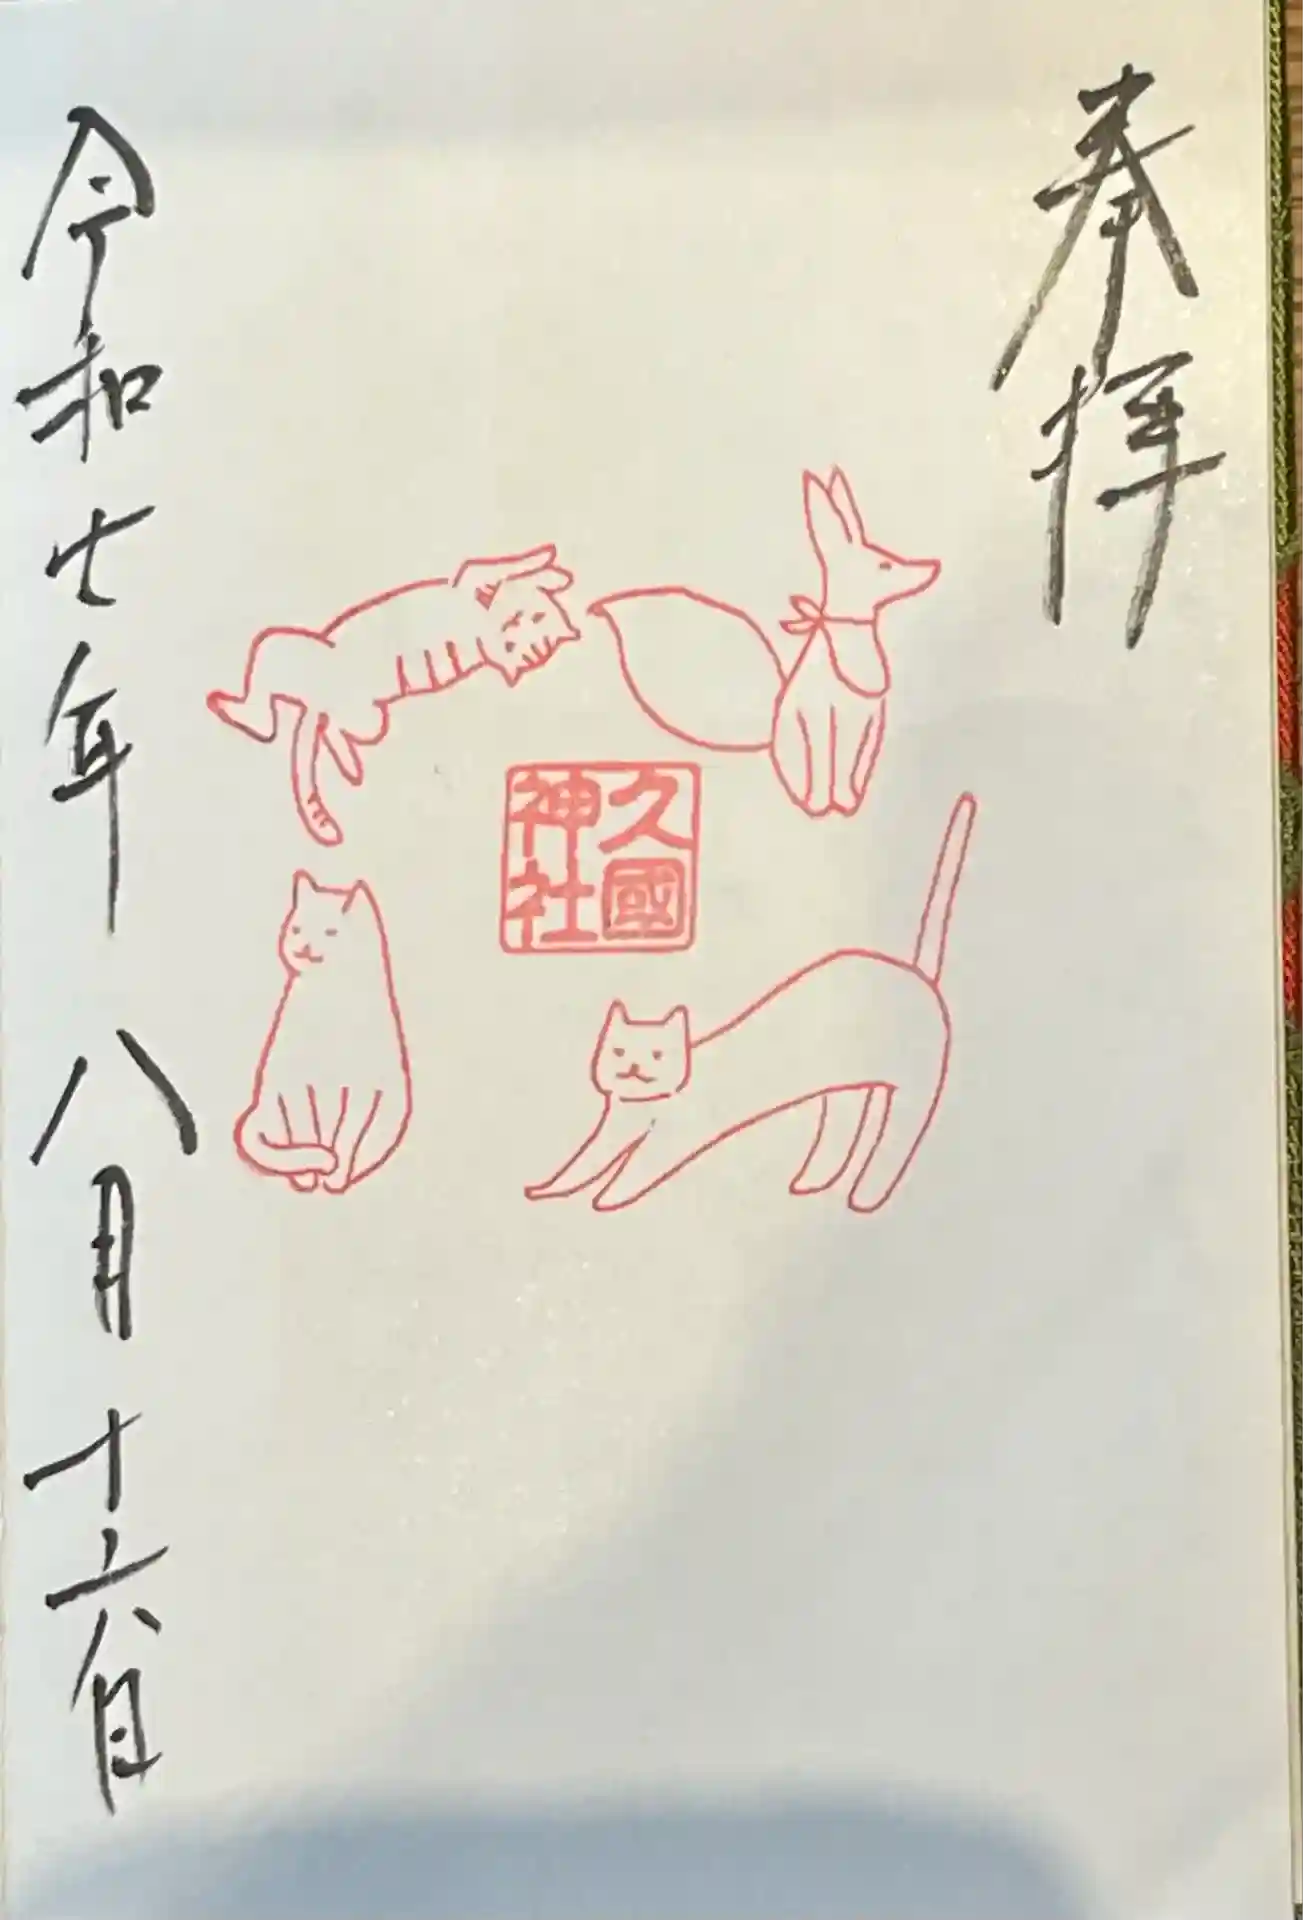 奉拝
久國
神社
令和七年 八月十六日